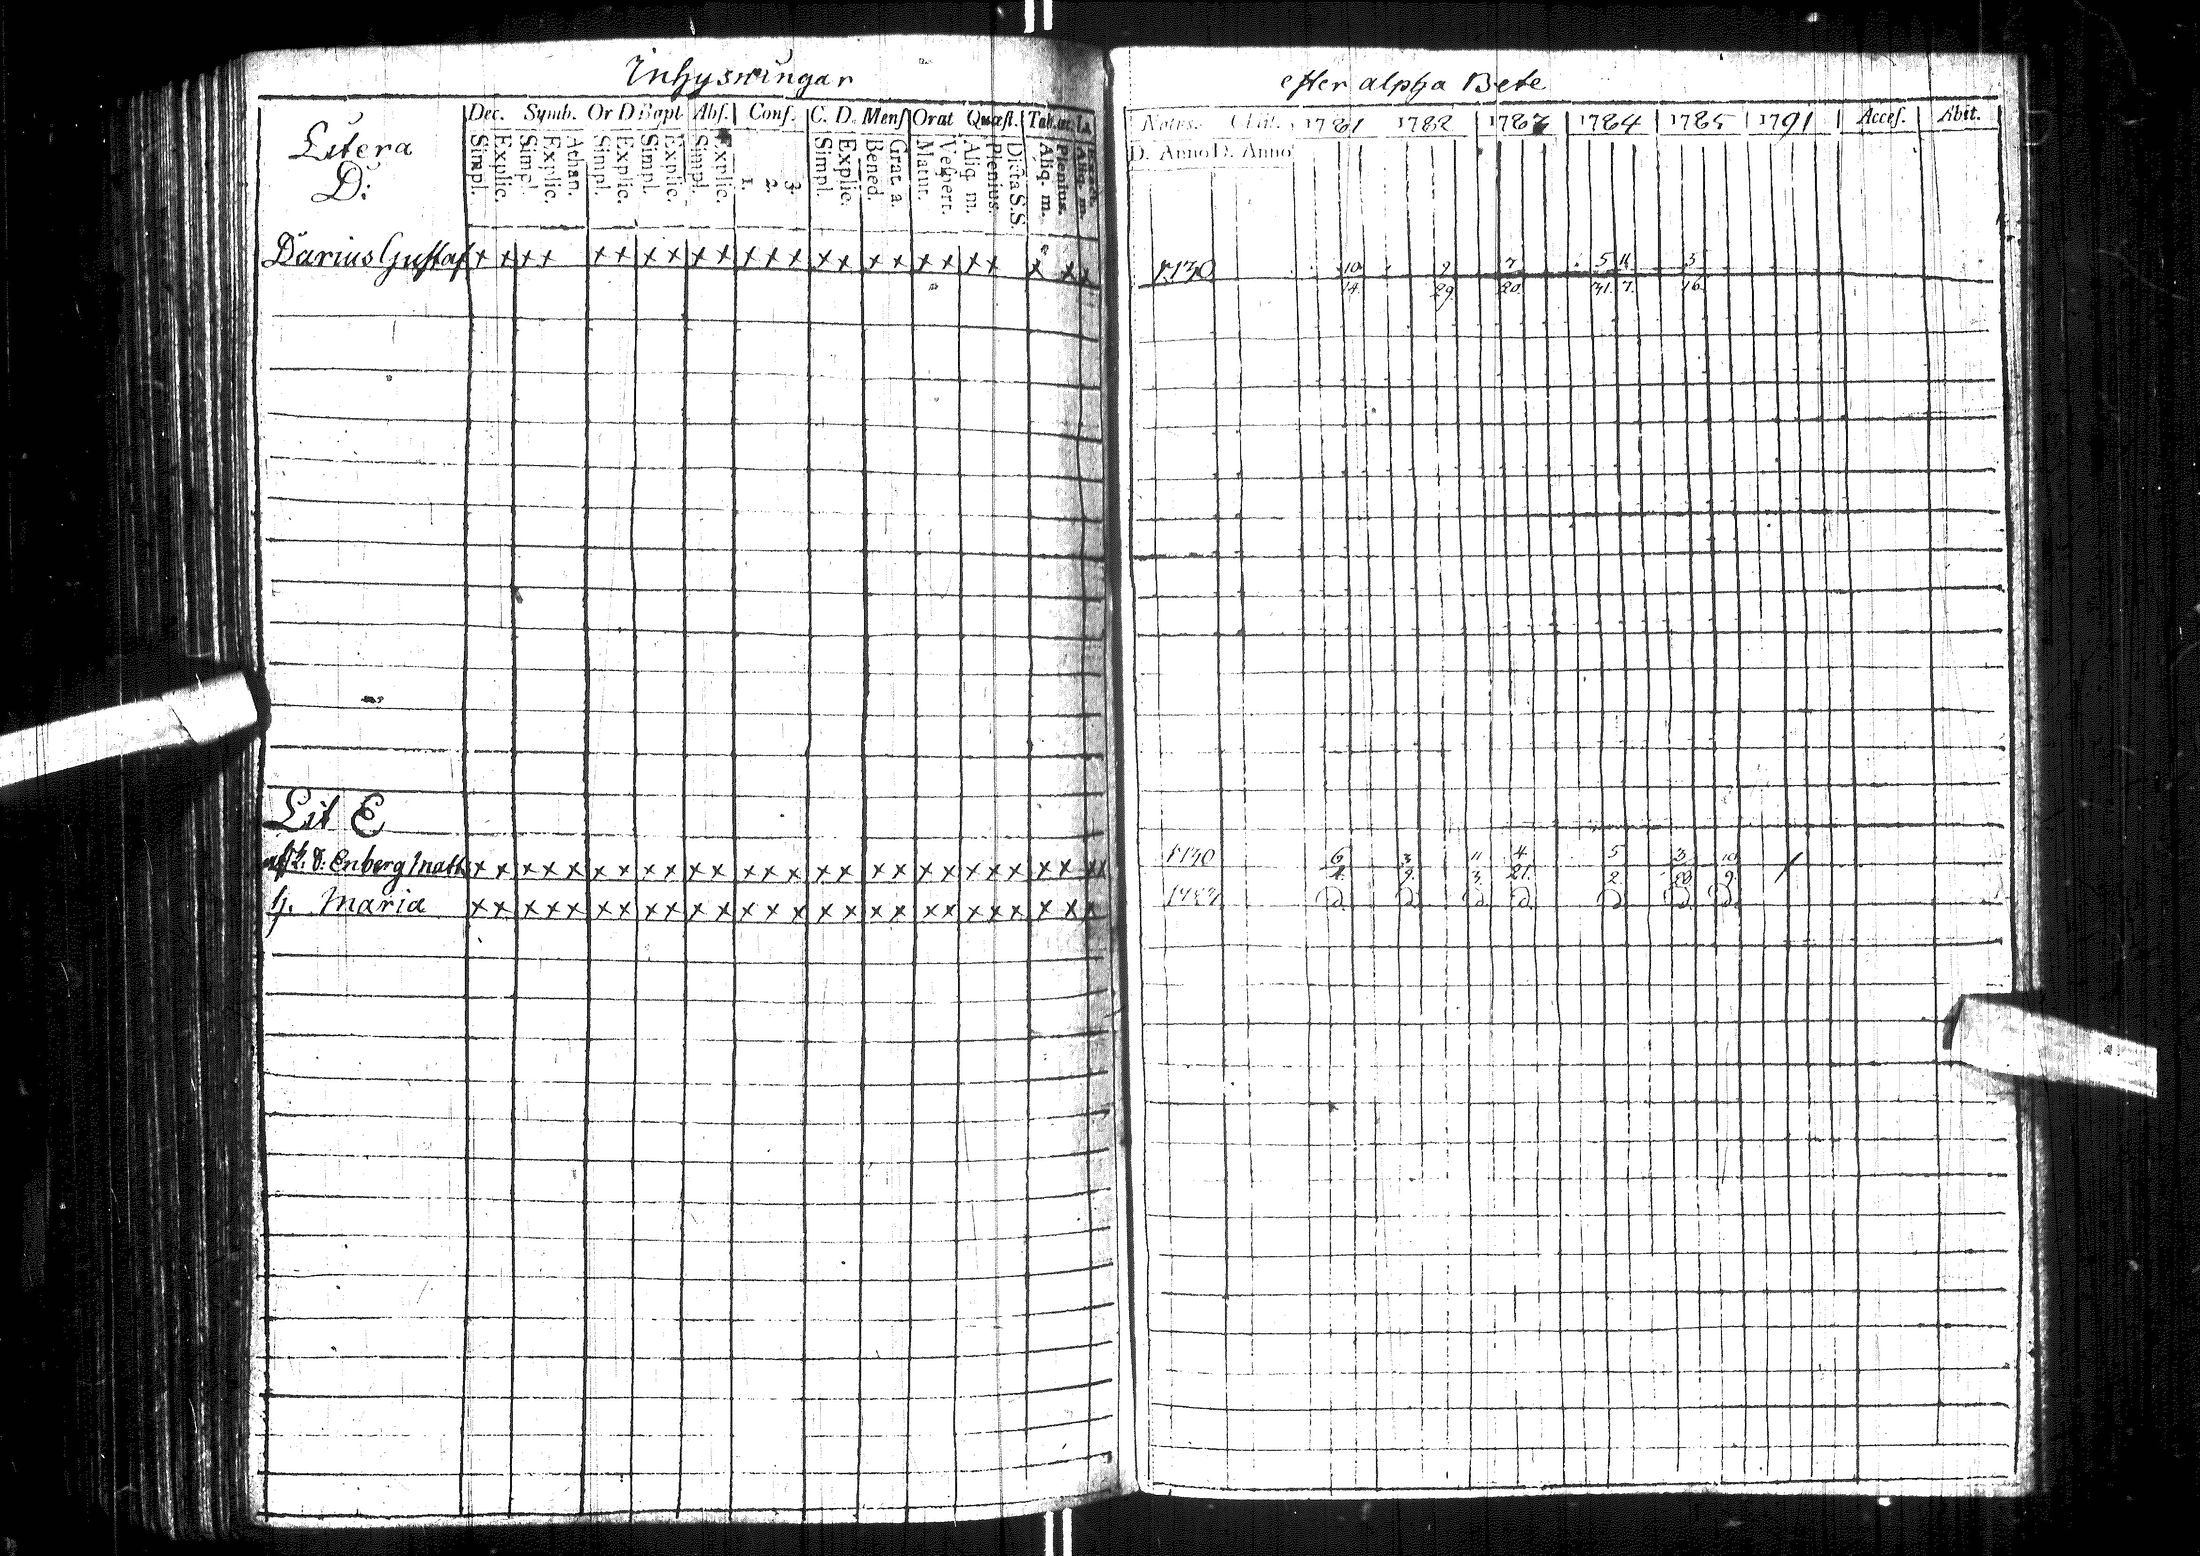 Inhysningar
Litera
D:
Dec. Symb. Or D Bapt Abs. Conf. C. D. Mens Orat Quæst. Tab.
Simpl. Explic. Simpl. Explic. Athan. Simpl. Explic. Simpl. Explic. Simpl. Explic. 1. 2. 3. Simpl. Explic. Bened. Grat. a. Matut. Vespert. Aliq. m. Plenius. Dicta S.S. Aliq. m. Plenius. Aliq. m.
Darius Gustaf x x x x x x x x x x x x x x x x x x x x x x x x
Lit E
Enberg Math x x x x x x x x x x x x x x x x x x x x x x x x x x
h. Maria x x x x x x x x x x x x x x x x x x x x x x x x x x
efter alpha Bete
1781 1782 1783 1784 1785 1791 Acces. Abit.
D. Anno D. Anno
1730 10 9 7 5 11 3
14. 29. 20. 31. 7. 16.
1730 6 3 11 4 5 3 10
9. 3. 21. 2. 20. 9.